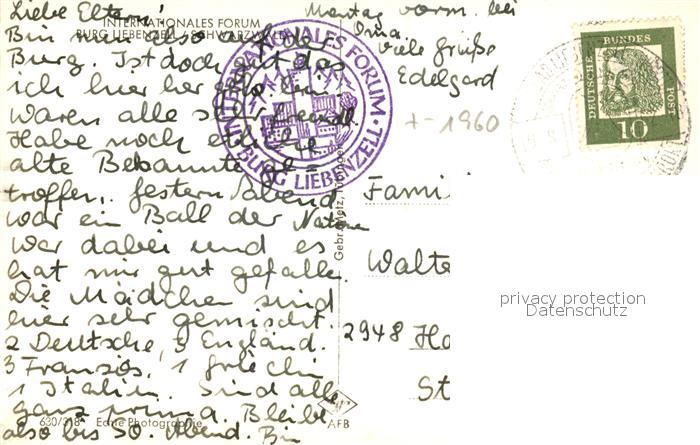 Liebe Eltern!
INTERNATIONALES FORUM
BURG LIEBENZELL / SCHWARZWALD
Bin nun also auf der
Burg. Ist doch gut das
ich hier her
waren alle sehr
Habe noch
alte Bekannte ge=
troffen. Gestern Abend
war ein Ball der Nationen
War dabei und es
hat mir gut gefallen.
Die Mädchen sind
hier sehr gemischt.
2 Deutsche, 3 England.
3 Französ. 1 Griechin
1 Italien. Sind alle
ganz prima. Bleibe
also bis So. Abend. Bin
630/318 Echte Photographie
Montag vorm. bei
Oma
Viele Grüße
Edelgard
INTERNATIONALES FORUM
BURG LIEBENZELL
+-1960
DEUTSCHE BUNDES POST
10
Gebr. Metz, Tübingen
Fami
Walte
2948 Ho
St
AFB
privacy protection
Datenschutz